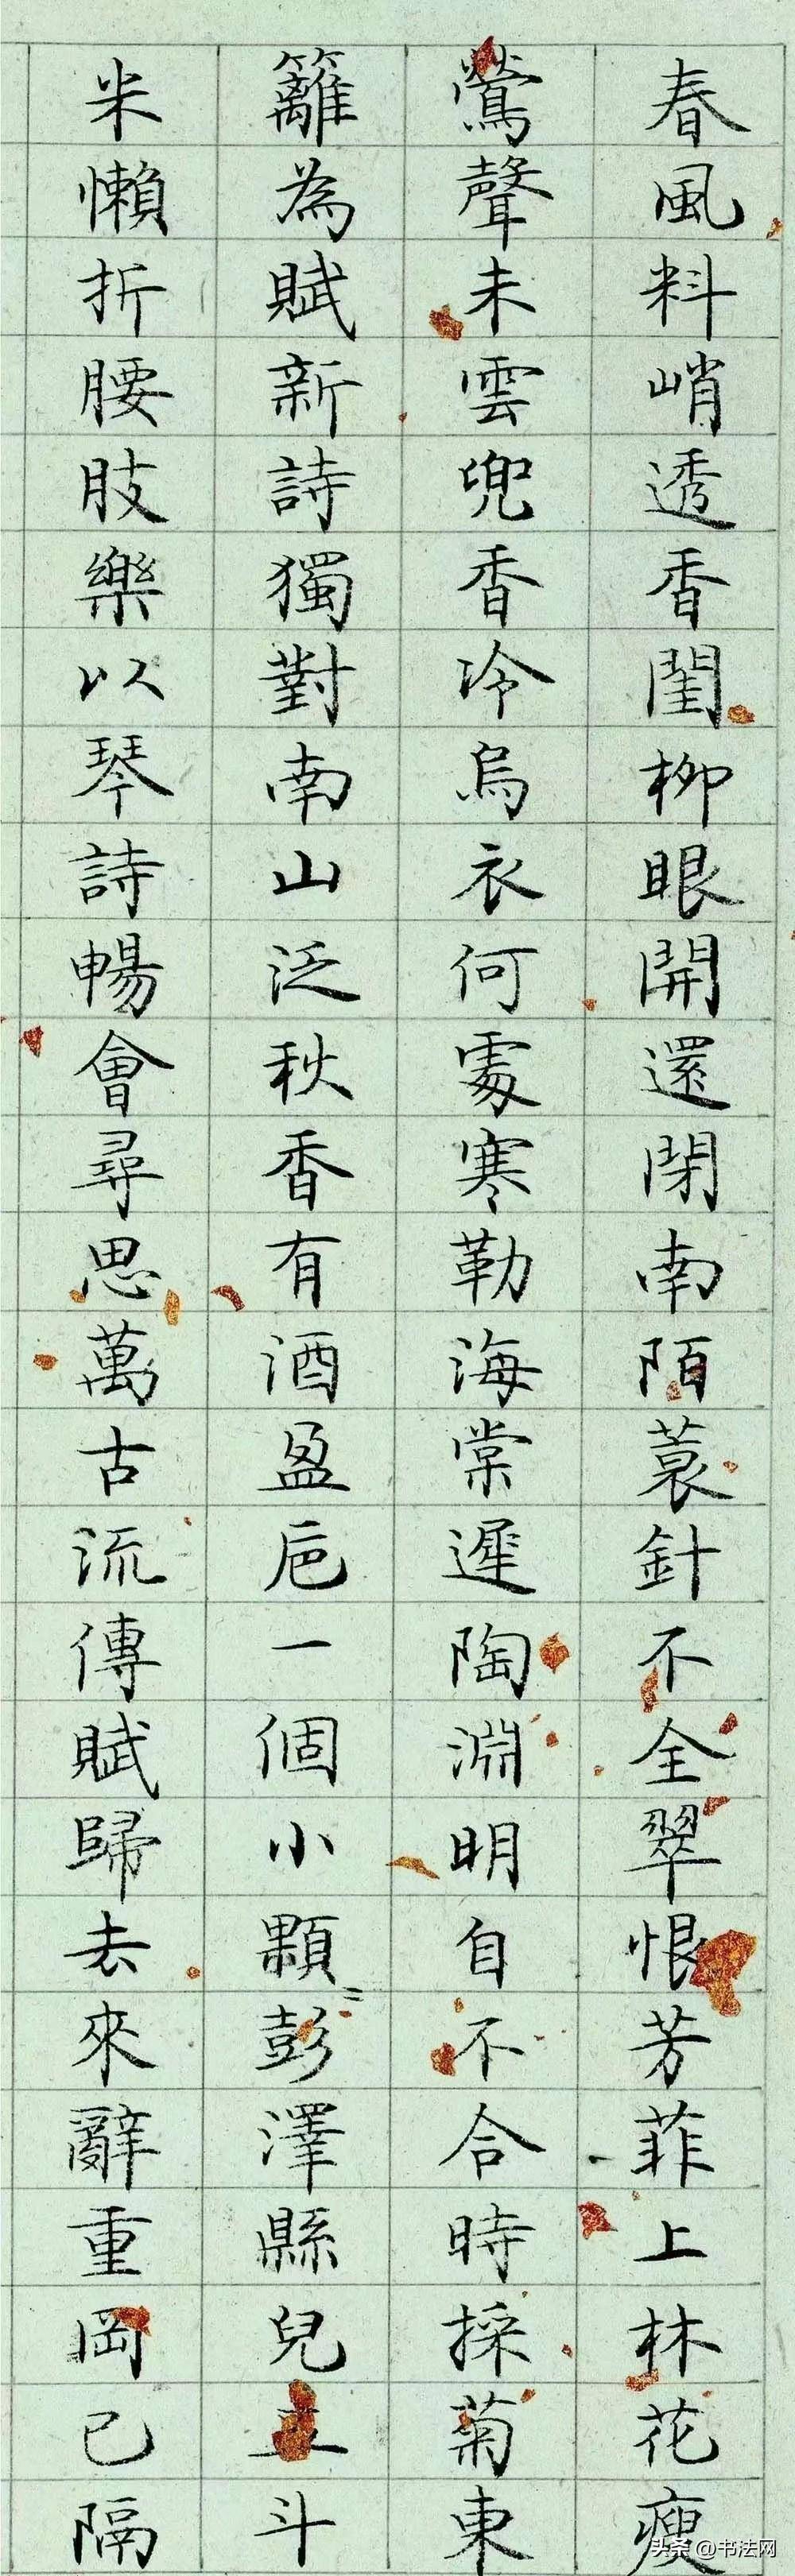 春風料峭透香閨柳眼開還閉南陌蓑針不全翠恨芳菲上林花瘦
鶯聲未雲兜香冷烏衣何處寒勒海棠遲陶淵明自不合時採菊東
籬為賦新詩獨對南山泛秋香有酒盈卮一個小顆〻彭澤縣兒五斗
米懶折腰肢樂以琴詩暢會尋思萬古流傳賦歸去來辭重岡已隔
头条 @书法网